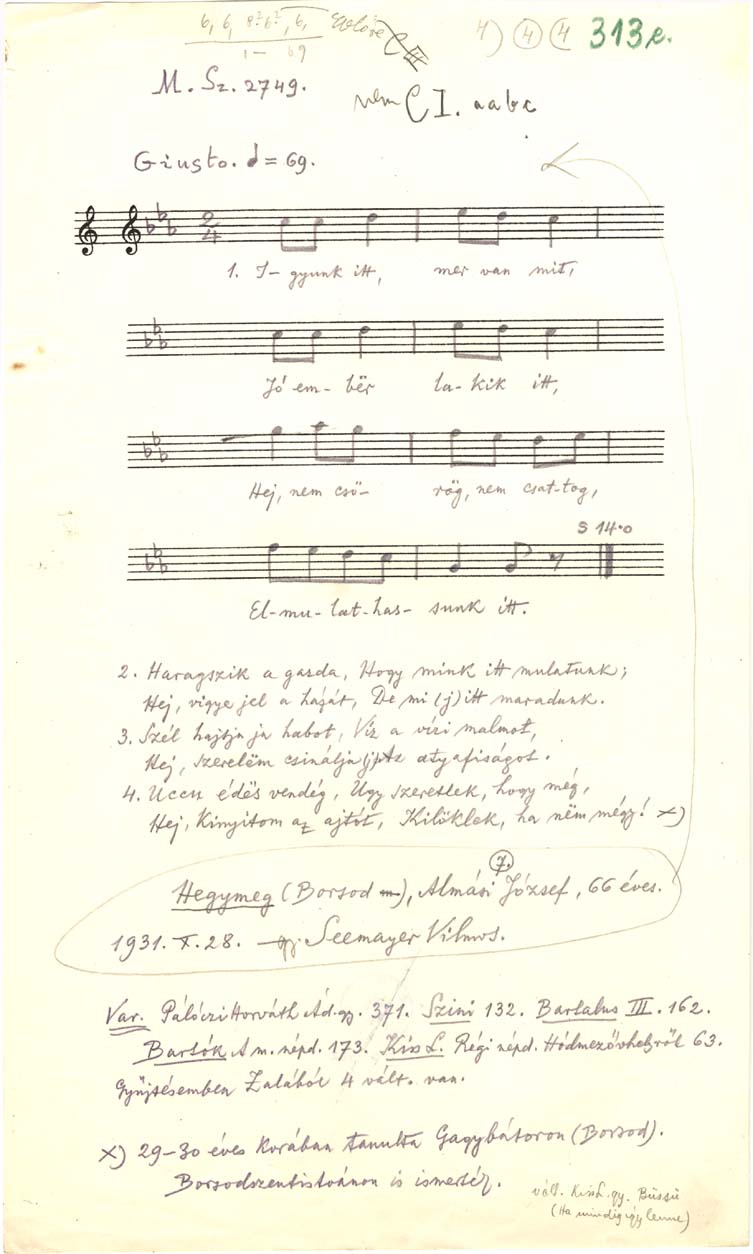 6, 6, 8²6², 6,
1 — b9
4) 4 4 313e.
M. Sz. 2749.
nem C I. aabc
Giusto. ♩ = 69.
2/4
1. I- gyunk itt, mer van mit,
Jó em- bër la- kik itt,
Hej, nem csö- rög, nem csat-tog,
S 14.0
El-mu-lat-has- sunk itt.
2. Haragszik a gazda, Hogy mink itt mulatunk;
Hej, vigye jel a házát, De mi (j) itt maradunk.
3. Szél hajtja ja habot, Víz a vizi malmot,
Hej, szerelëm csinálja az atyafiságot.
4. Uccu édës vendég, Ugy szeretlek, hogy még,
Hej, Kinyitom az ajtót, Kilöklek, ha nëm mégy! x)
7.
Hegymeg (Borsod m), Almási József, 66 éves.
1931. X. 28. gy. Seemayer Vilmos.
Var. Pálóczi Horváth Ád. gy. 371. Szini 132. Bartalus III. 162.
Bartók A m. népd. 173. Kiss L. Régi népd. Hódmezővhelyről 63.
Gyűjtésemben Zalából 4 vált. van.
x) 29-30 éves korában tanulta Gagybátoron (Borsod).
Borsodszentistvánon is ismerték.
vált. Kiss L. gy. Büssü
(Ha mindig így lenne)